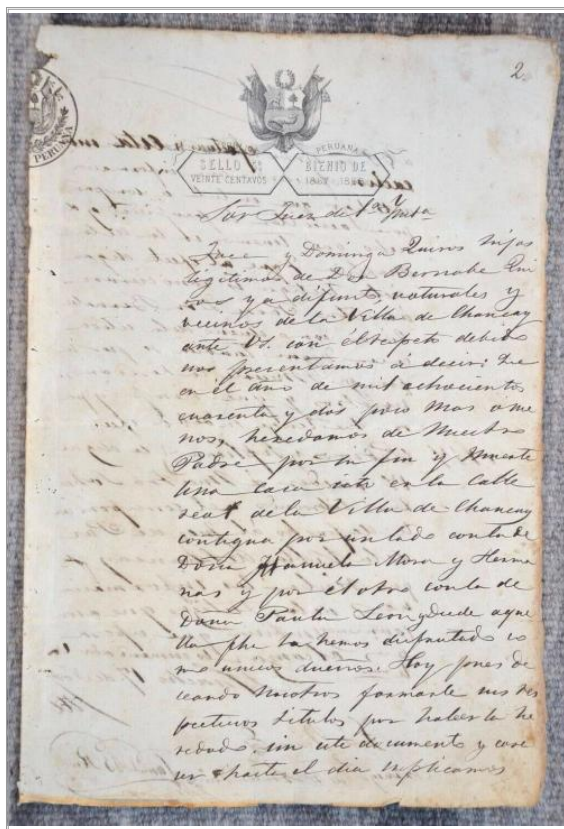 2
PERUANA
PERUANA
SELLO 5º BIENIO DE
VEINTE CENTAVOS
Sor Juez de 1ra Ynsta
Jose y Dominga Quiros hijos
legitimos de Don Bernabe Qui
ros ya difunto naturales y
vecinos de la Villa de Chancay
ante VS. con el respeto debido
nos presentamos à decir: Que
en el año de mil ochocientos
cuarenta y dos poco mas ó me
nos, heredamos de Nuestro
Padre por su fin y muerte
una casa en la Calle
real de la Villa de Chancay
contigua por un lado con la de
Doña Manuela Mora y Herma
nas y por el otro con la de
Doña Paula Leon y desde aque
lla fha la hemos disfrutado co
mo unicos dueños. Hoy pues de
ceando nosotros formarle sus res
pectivos titulos por haberla he
redado sin este documento y care
hasta el dia suplicamos